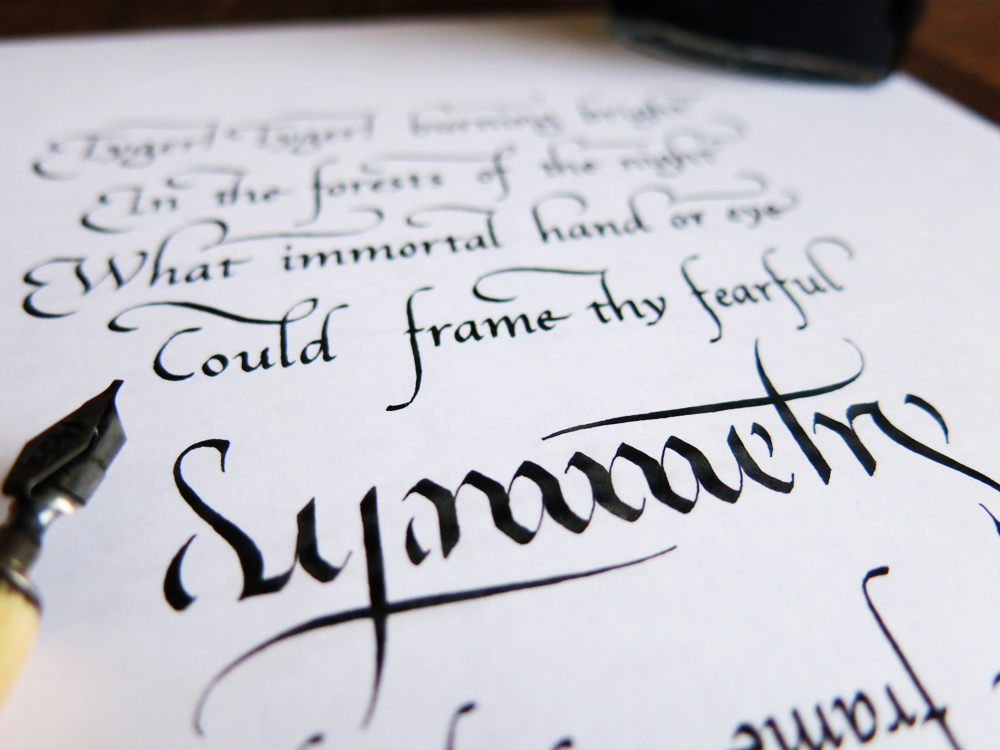 Tyger! Tyger! burning bright
In the forests of the night
What immortal hand or eye
Could frame thy fearful
Symmetry
frame